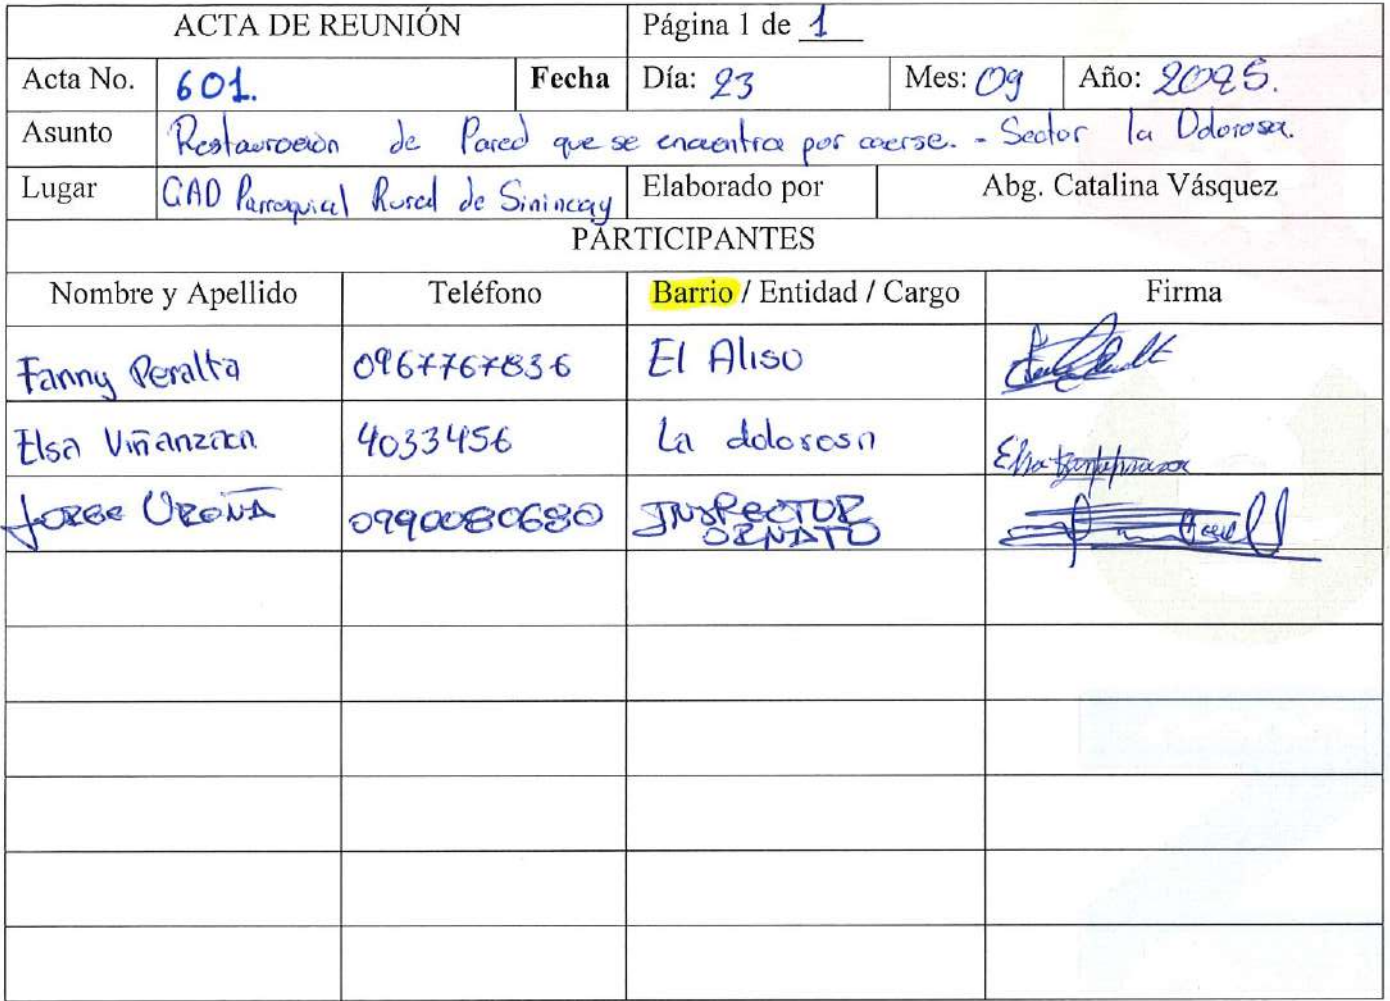 ACTA DE REUNIÓN Página 1 de 1
Acta No. 601. Fecha Día: 23 Mes: 09 Año: 2025.
Asunto Restauración de Pared que se encuentra por caerse. - Sector la Dolorosa.
Lugar GAD Parroquial Rural de Sinincay Elaborado por Abg. Catalina Vásquez
PARTICIPANTES
Nombre y Apellido Teléfono Barrio / Entidad / Cargo Firma
Fanny Peralta 0967767836 El Aliso
Elsa Viñanzaca 4033456 La dolorosa
JORGE UREÑA 0990080680 INSPECTOR
ORNATO